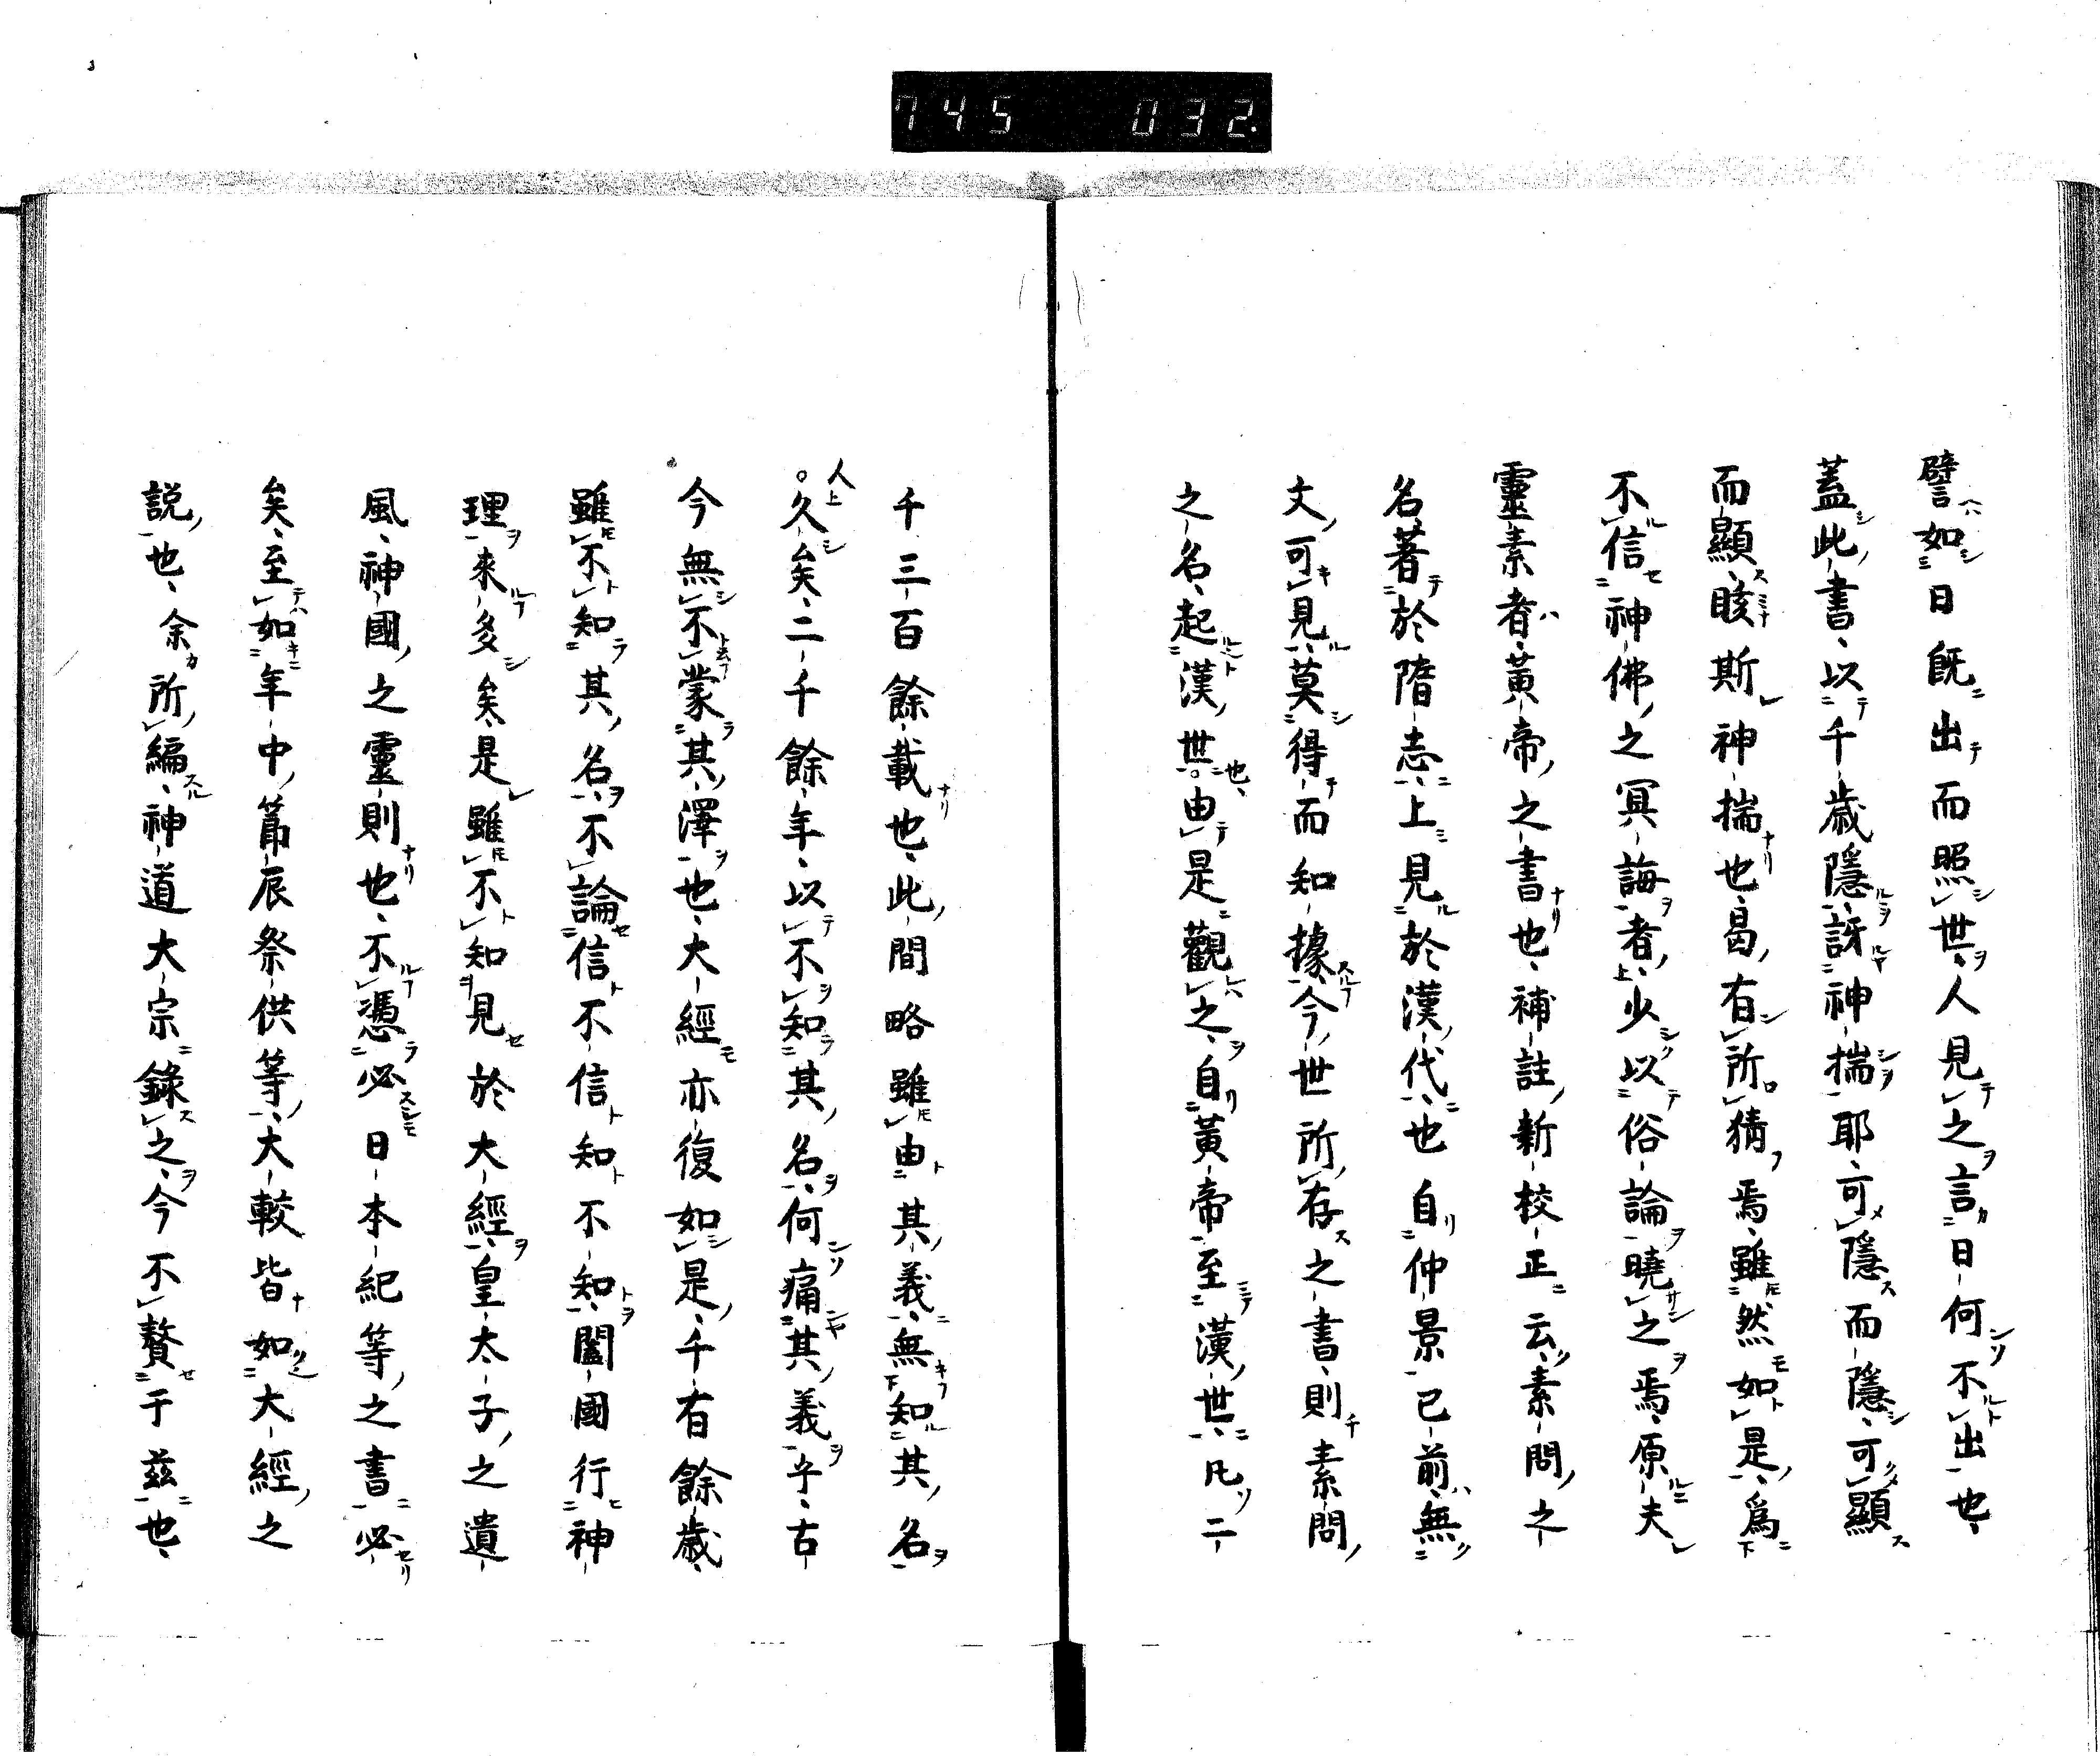 745 032.
譬如日既出而照世人見之言日何不出也、
蓋此書、以千歳隱訝神揣耶、可隱而隱、可顯
而顯、晐斯神揣也、曷有所猜焉、雖然如是、爲
不信神佛之冥誨者、少以俗論曉之焉、原夫
靈素者、黃帝之書也、補註新校正云、素問之
名著於隋志、上見於漢代也自仲景已前無
文、可見、莫得而知據、今世所存之書、則素問
之名、起漢世也、由是觀之、自黃帝至漢世、凡二
千三百餘載也、此間略雖由其義、無知其名
人久矣、二千餘年、以不知其名、何痛其義乎、古
今無不蒙其澤也、大經亦復如是、千有餘歲、
雖不知其名、不論信不信知不知、闔國行神
理來多矣、是雖不知見於大經、皇太子之遺
風、神國之靈則也、不憑必日本紀等之書必
矣、至如年中節辰祭供等、大較皆如大經之
説也、余所編、神道大宗錄之、今不贅于茲也、